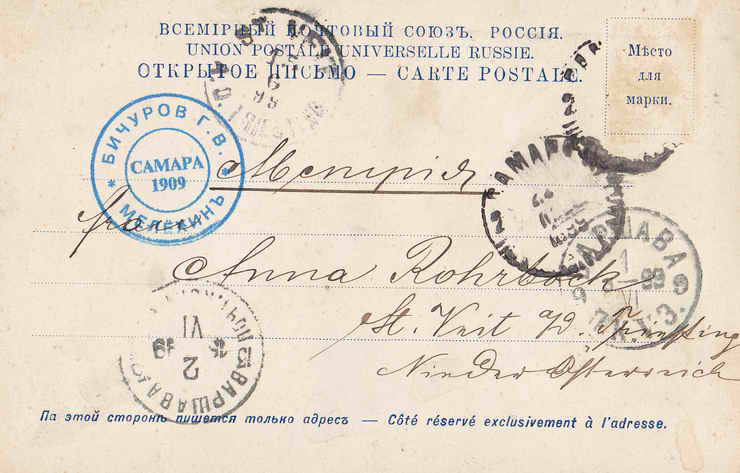 ВСЕМІРНЫЙ ПОЧТОВЫЙ СОЮЗЪ. РОССІЯ.
UNION POSTALE UNIVERSELLE RUSSIE.
ОТКРЫТОЕ ПИСЬМО — CARTE POSTALE.
Мѣсто
для
марки.
БИЧУРОВ Г. В.
САМАРА
1909
МЕЛЕКИНЪ
САМАРА
ВАРШАВА
1
VI
99
9 9
Anna Rohrbock
St. Veit a/d.
Nieder Österreich
ВАРШАВА
VI
2
На этой сторонѣ пишется только адресъ — Côté réservé exclusivement à l'adresse.